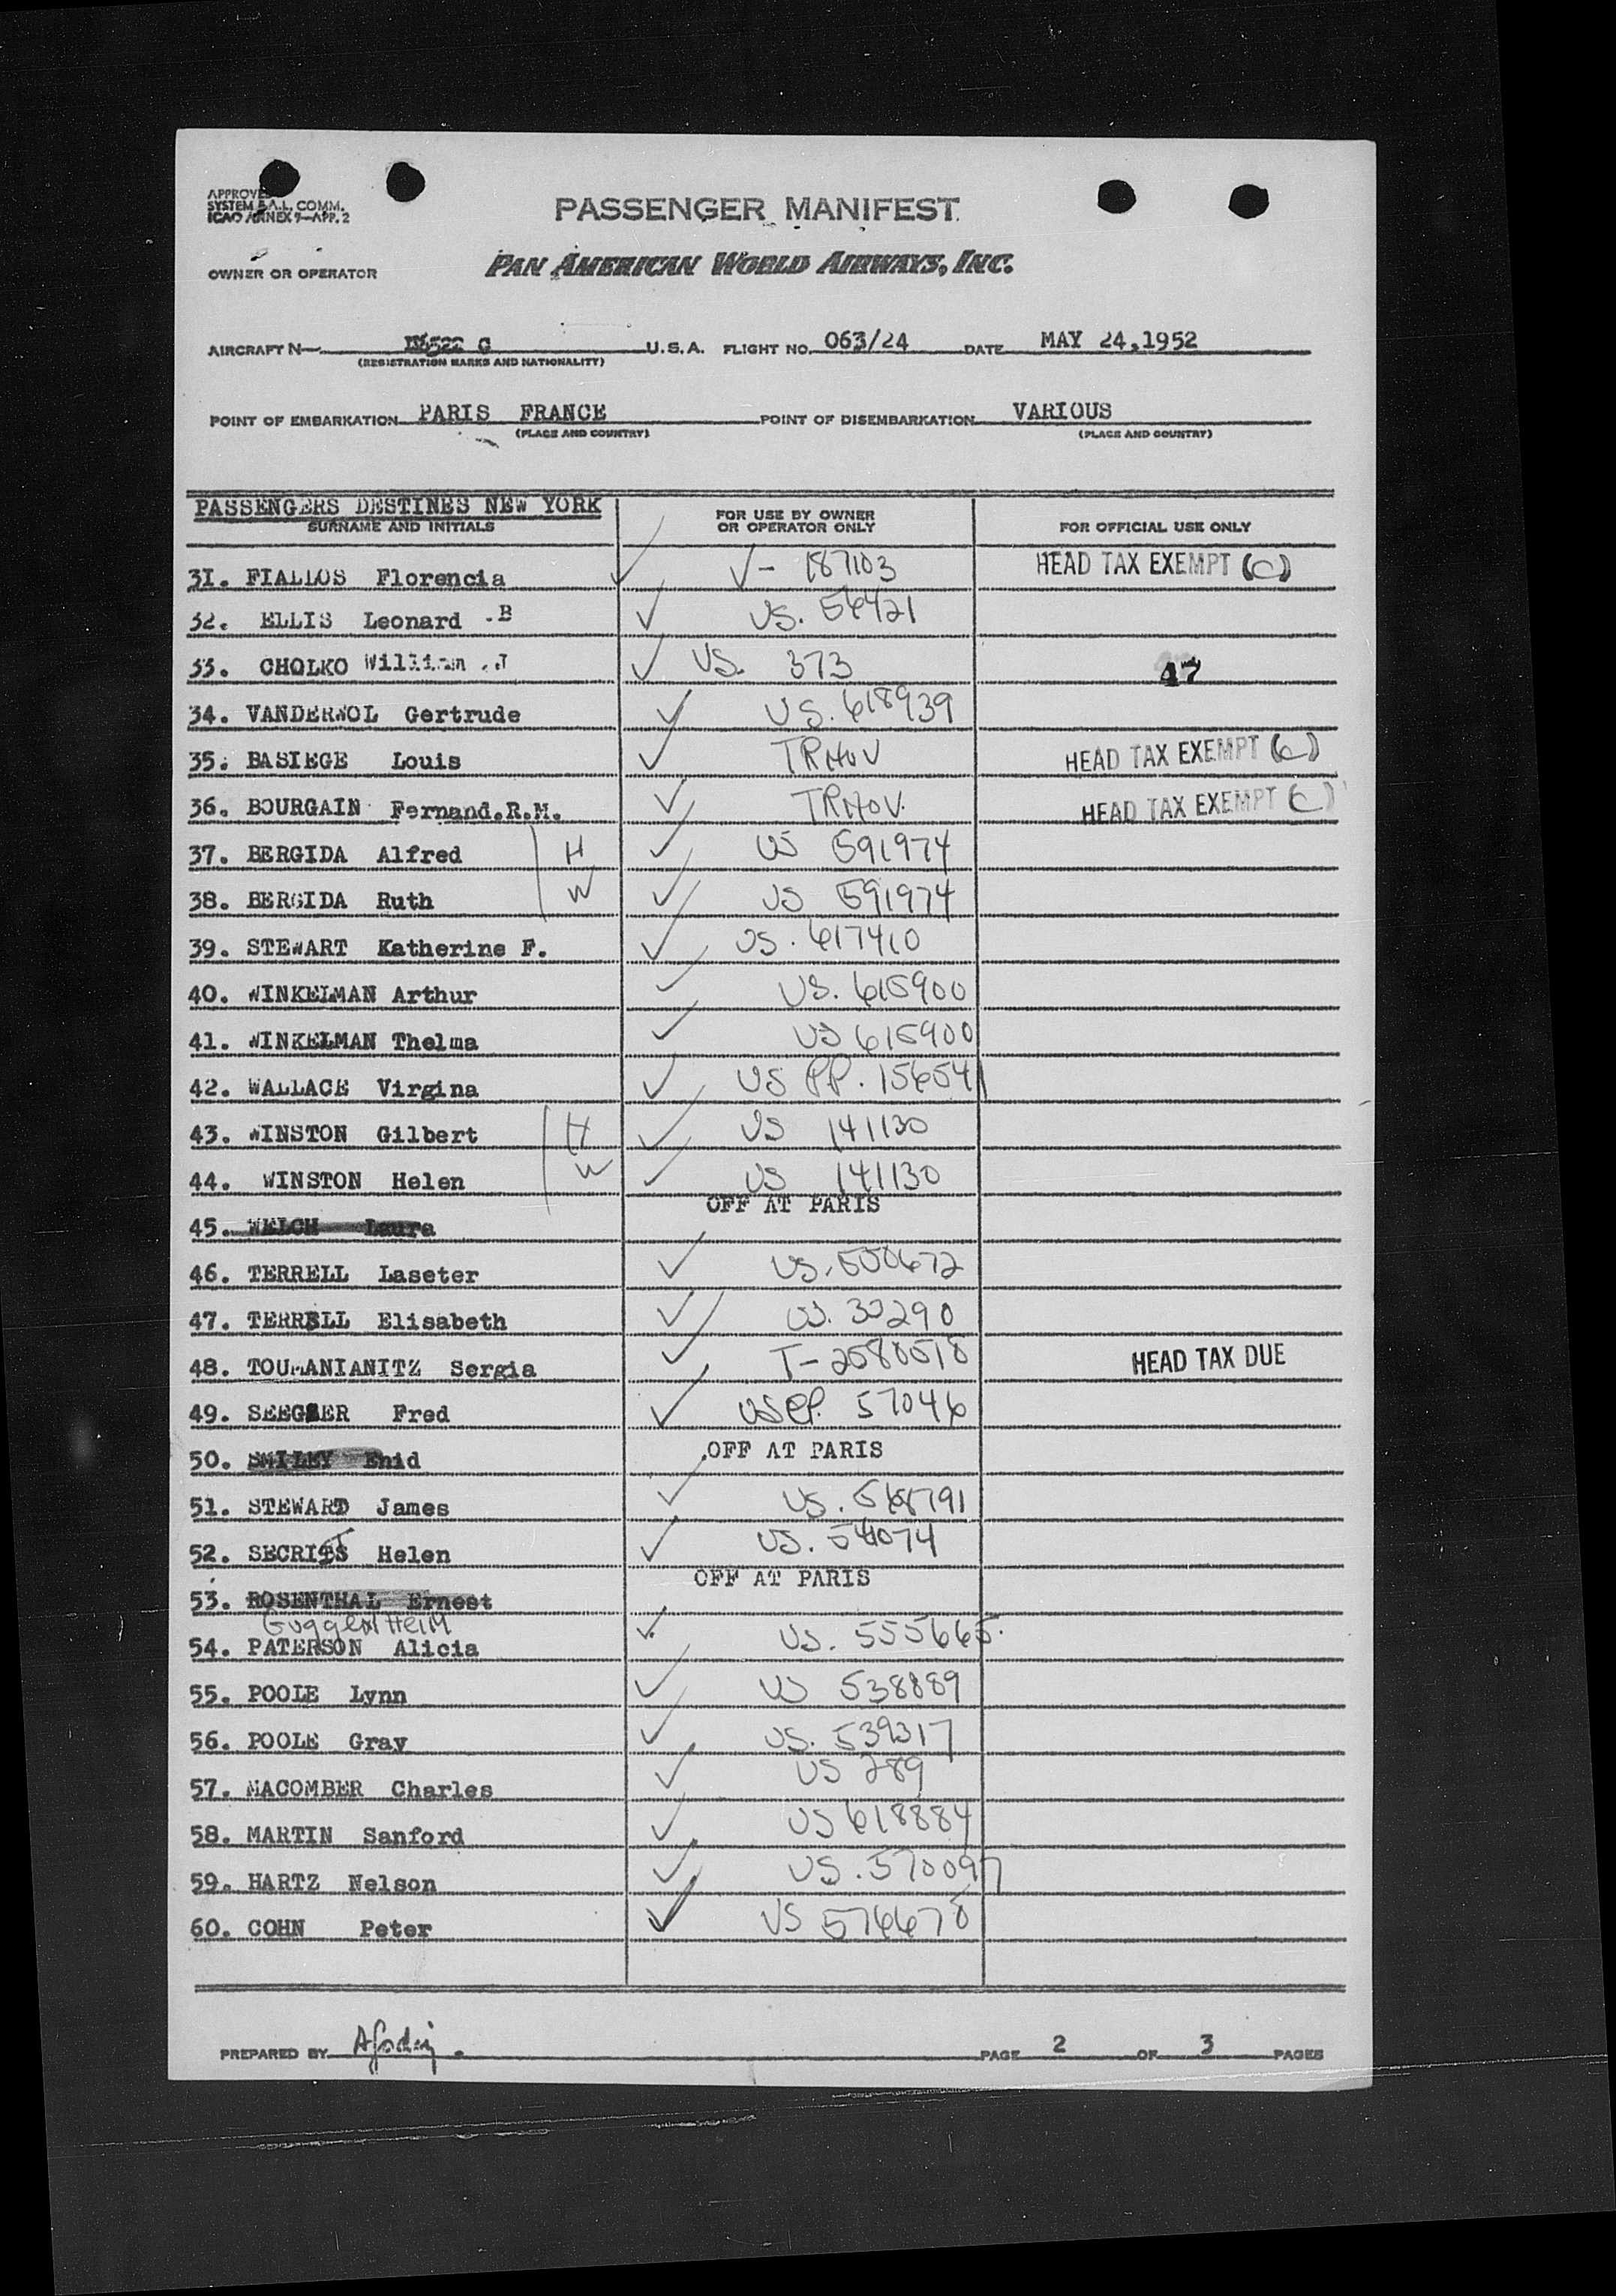 APPROVE
SYSTEM & A.L. COMM.
ICAO ANNEX 9—APP. 2
PASSENGER MANIFEST
OWNER OR OPERATOR PAN AMERICAN WORLD AIRWAYS, INC.
AIRCRAFT N— U.S.A. FLIGHT NO. 063/24 DATE MAY 24,1952
(REGISTRATION MARKS AND NATIONALITY)
POINT OF EMBARKATION PARIS FRANCE POINT OF DISEMBARKATION VARIOUS
(PLACE AND COUNTRY) (PLACE AND COUNTRY)
PASSENGERS DESTINES NEW YORK
SURNAME AND INITIALS FOR USE BY OWNER OR OPERATOR ONLY FOR OFFICIAL USE ONLY
31. FIALLOS Florencia V- 187103 HEAD TAX EXEMPT (C)
32. ELLIS Leonard .B US. 56421
33. CHOLKO William .J US. 373 47
34. VANDERWOL Gertrude US. 618939
35. BASIEGE Louis TRHOV HEAD TAX EXEMPT (C)
36. BOURGAIN Fernand.R.M. TRHOV. HEAD TAX EXEMPT (C)
37. BERGIDA Alfred H US 591974
38. BERGIDA Ruth W US 591974
39. STEWART Katherine F. US. 617410
40. WINKELMAN Arthur US. 615900
41. WINKELMAN Thelma US 615900
42. WALLACE Virgina US PP. 156541
43. WINSTON Gilbert H US 141130
44. WINSTON Helen W US 141130
45. WELCH Laura OFF AT PARIS
46. TERRELL Laseter US. 550672
47. TERRELL Elisabeth US. 30290
48. TOUMANIANITZ Sergia T- 2580518 HEAD TAX DUE
49. SEEGER Fred US PP. 57046
50. SMILEY Enid OFF AT PARIS
51. STEWARD James US. 568791
52. SECRIST Helen US. 54074
53. ROSENTHAL Ernest OFF AT PARIS
GuggenHeiM
54. PATERSON Alicia US. 555665.
55. POOLE Lynn US 538889
56. POOLE Gray US. 539317
57. MACOMBER Charles US 289
58. MARTIN Sanford US 618884
59. HARTZ Nelson US. 570097
60. COHN Peter US 576678
PREPARED BY PAGE 2 OF 3 PAGES